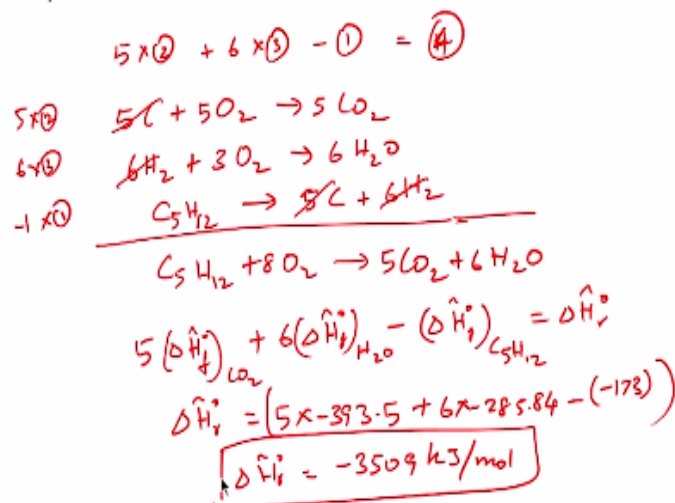 5×② + 6×③ - ① = ④
5×② 5C + 5O₂ → 5CO₂
6×③ 6H₂ + 3O₂ → 6H₂O
-1×① C₅H₁₂ → 5C + 6H₂
C₅H₁₂ + 8O₂ → 5CO₂ + 6H₂O
5(ΔĤ°f)CO₂ + 6(ΔĤ°f)H₂O - (ΔĤ°f)C₅H₁₂ = ΔĤ°r
ΔĤ°r = (5×-393.5 + 6×-285.84 - (-173))
ΔĤ°r = -3509 kJ/mol